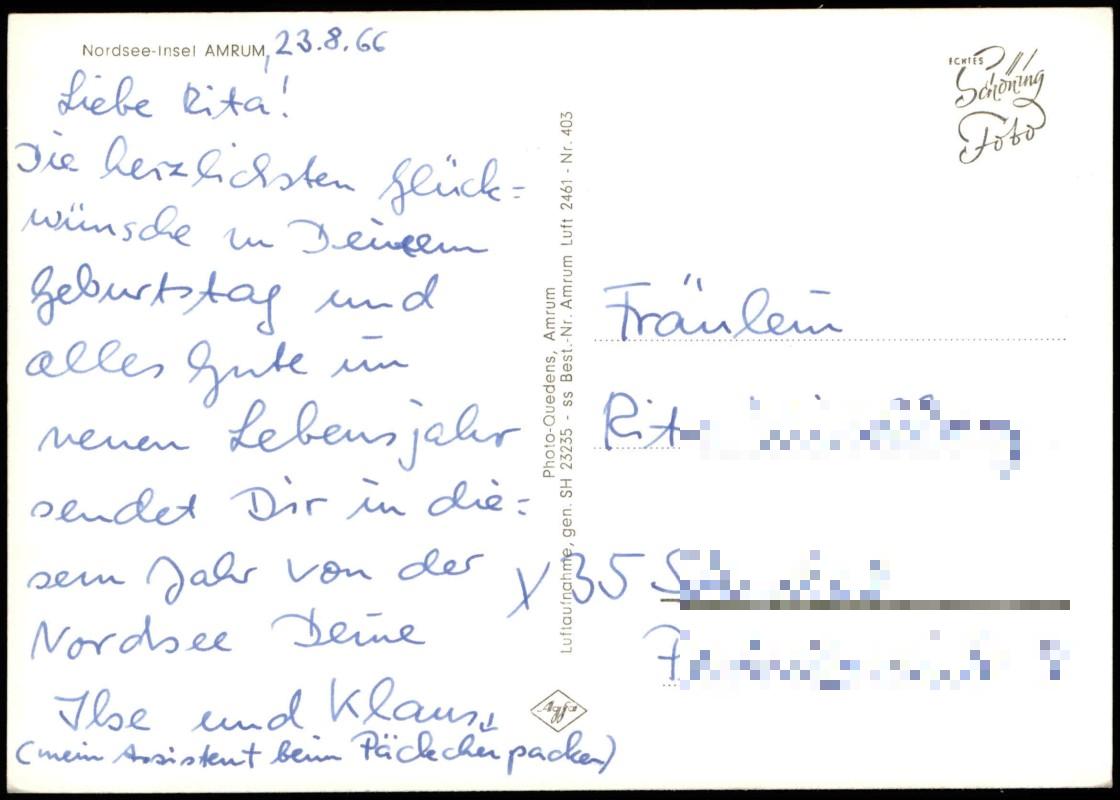 Nordsee-Insel AMRUM, 23.8.66
Liebe Rita!
Die herzlichsten Glück=
wünsche zu Deinem
Geburtstag und
alles Gute im
neuen Lebensjahr
sendet Dir in die=
sem Jahr von der
Nordsee Deine
Ilse und Klaus
(mein Assistent beim Päckchenpacken)
Photo-Quedens, Amrum
Luftaufnahme, gen. SH 23235 - ss Best.-Nr. Amrum Luft 2461 - Nr. 403
Agfa
ECHTES
Schöning
Foto
Fräulein
X 35